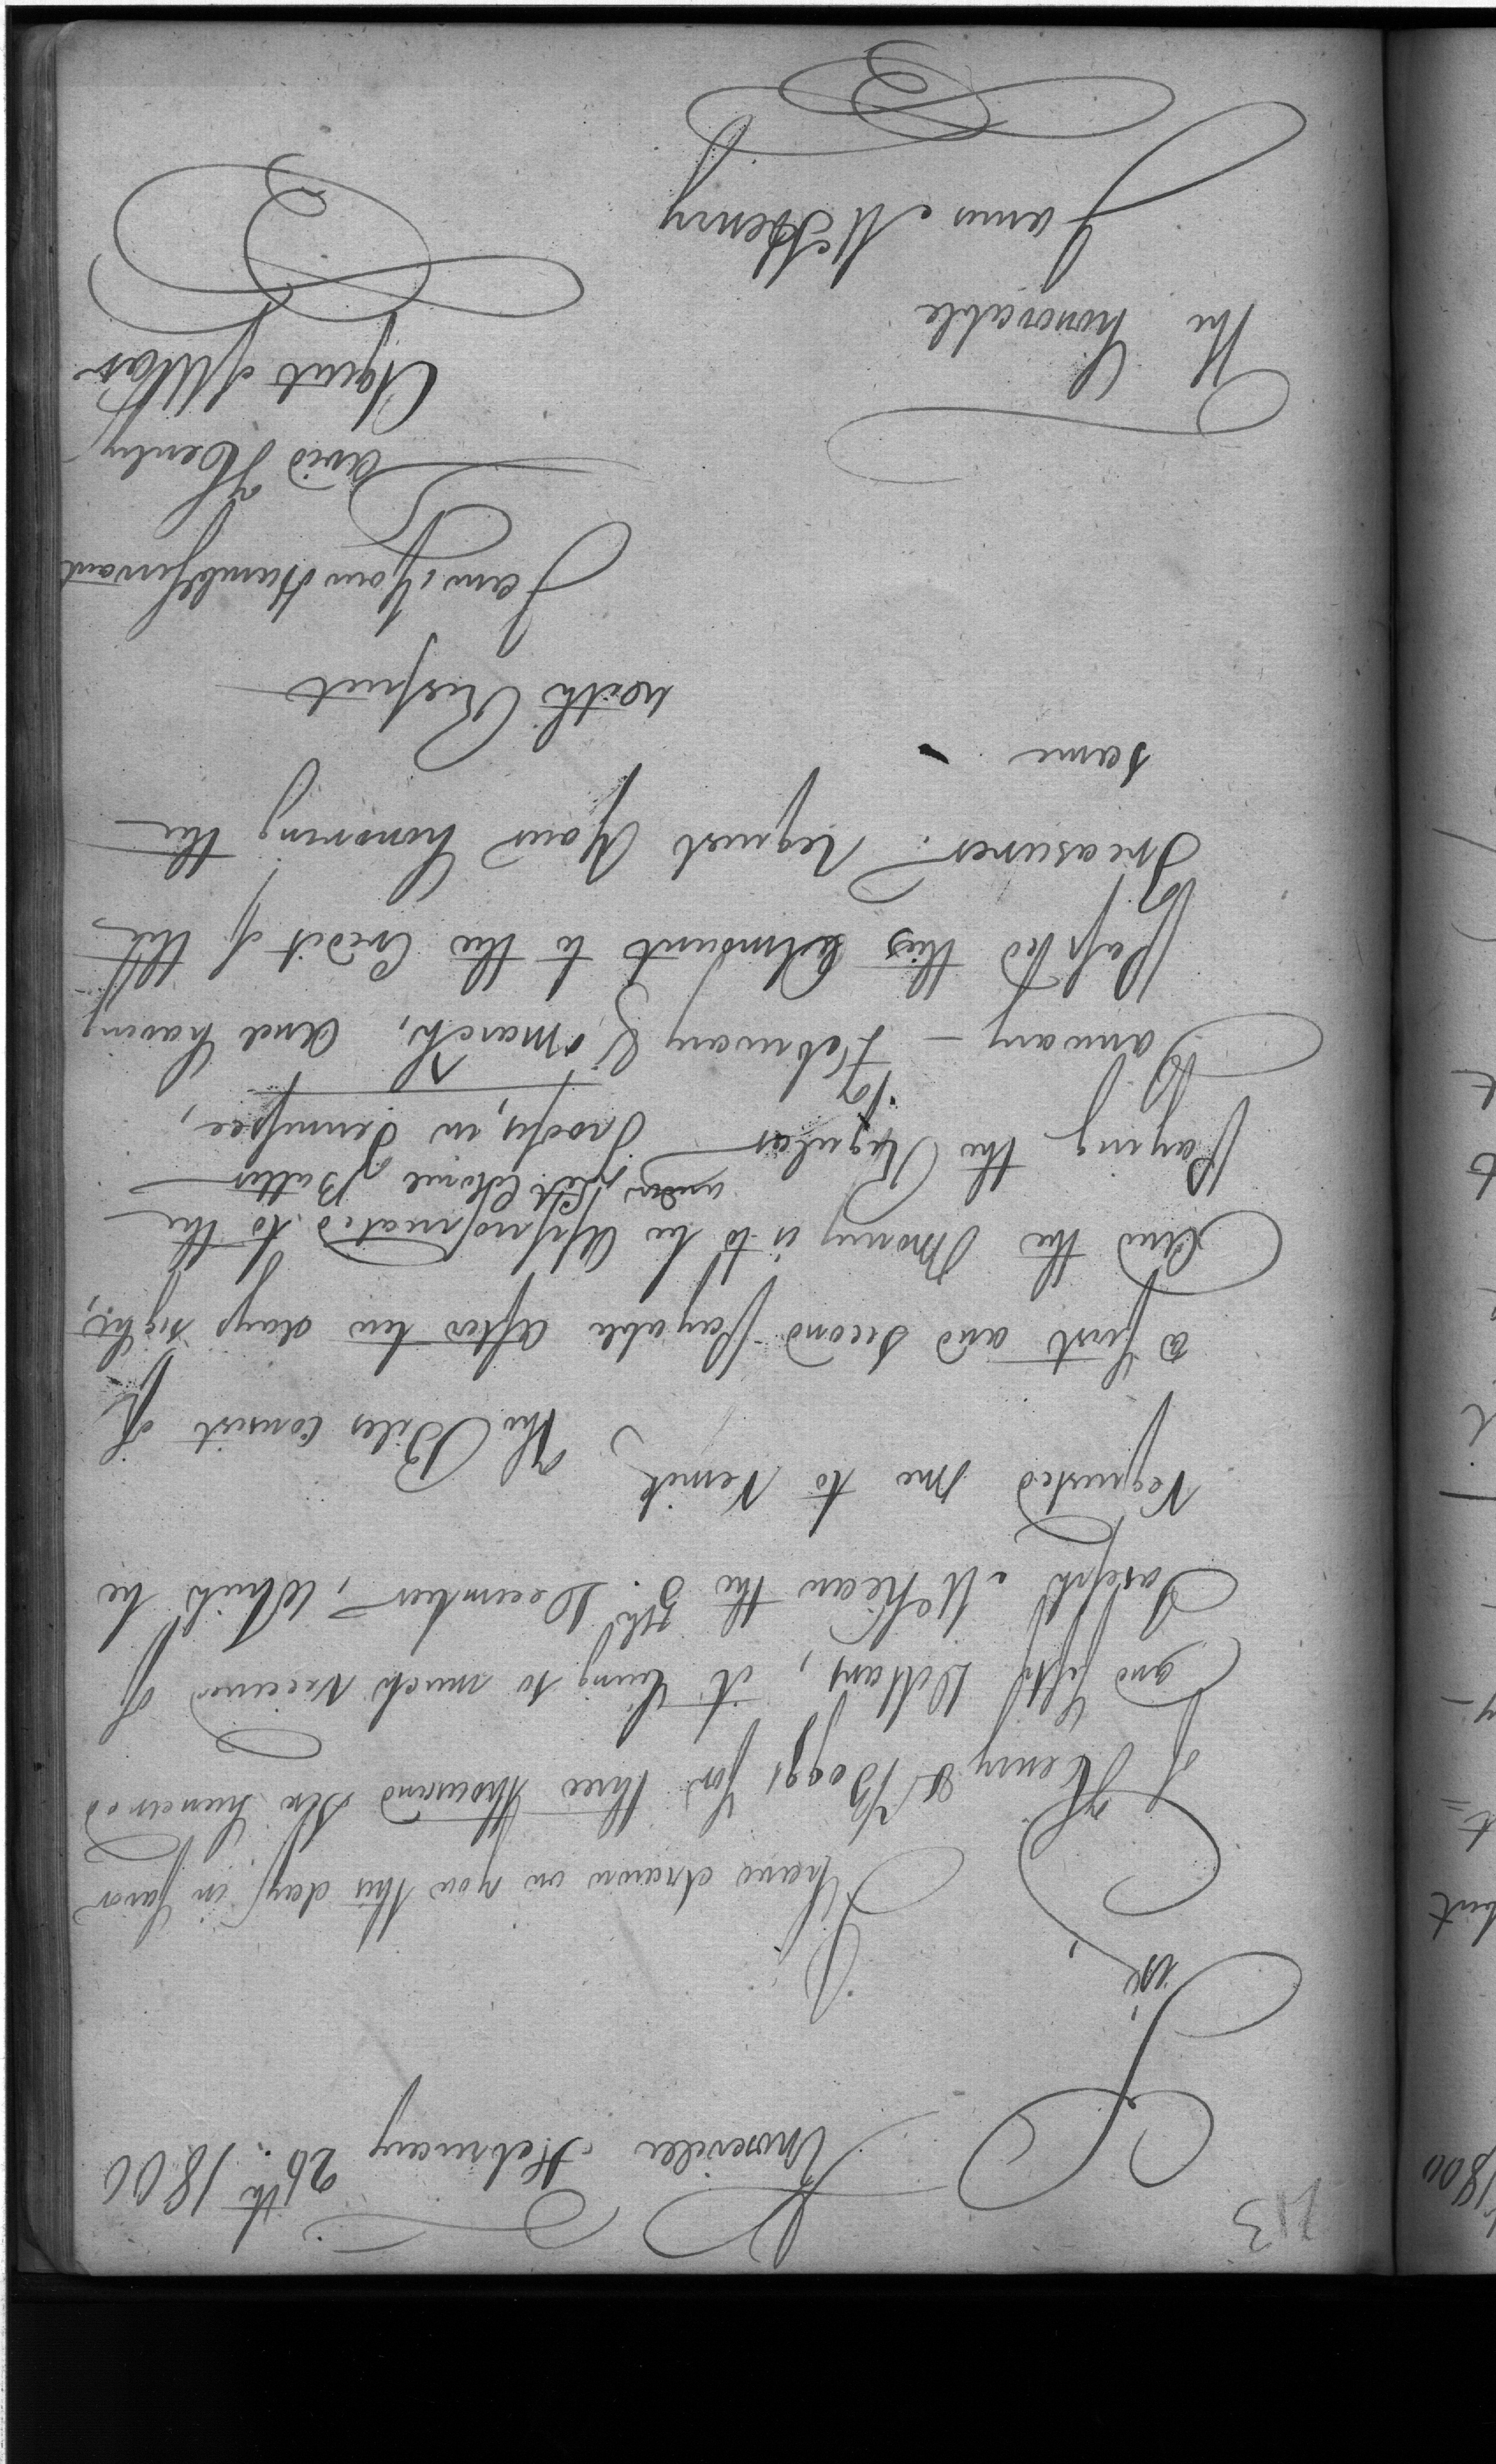 213
Knoxville February 26th. 1800
Sir,
I have drawn on you this day in favor
of Henry & Boggs for three thousand six hundred
and fifty Dollars, it being so much received of
Joseph McKean the 5th. December, which he
requested me to remit. The Bills consist of
a first and second payable after ten days sight,
And the Money is to be appropriated to the
Paying the Regular Troops, in Tennessee,
under Lt Colonel Butler
for
January – February & March, and having
Passed this Amount to the Credit of the
Treasurer. request your honoring the
same
with Respect
I am, Your Humble Servant
David Henley
Agent of War
The honorable
James McHenry